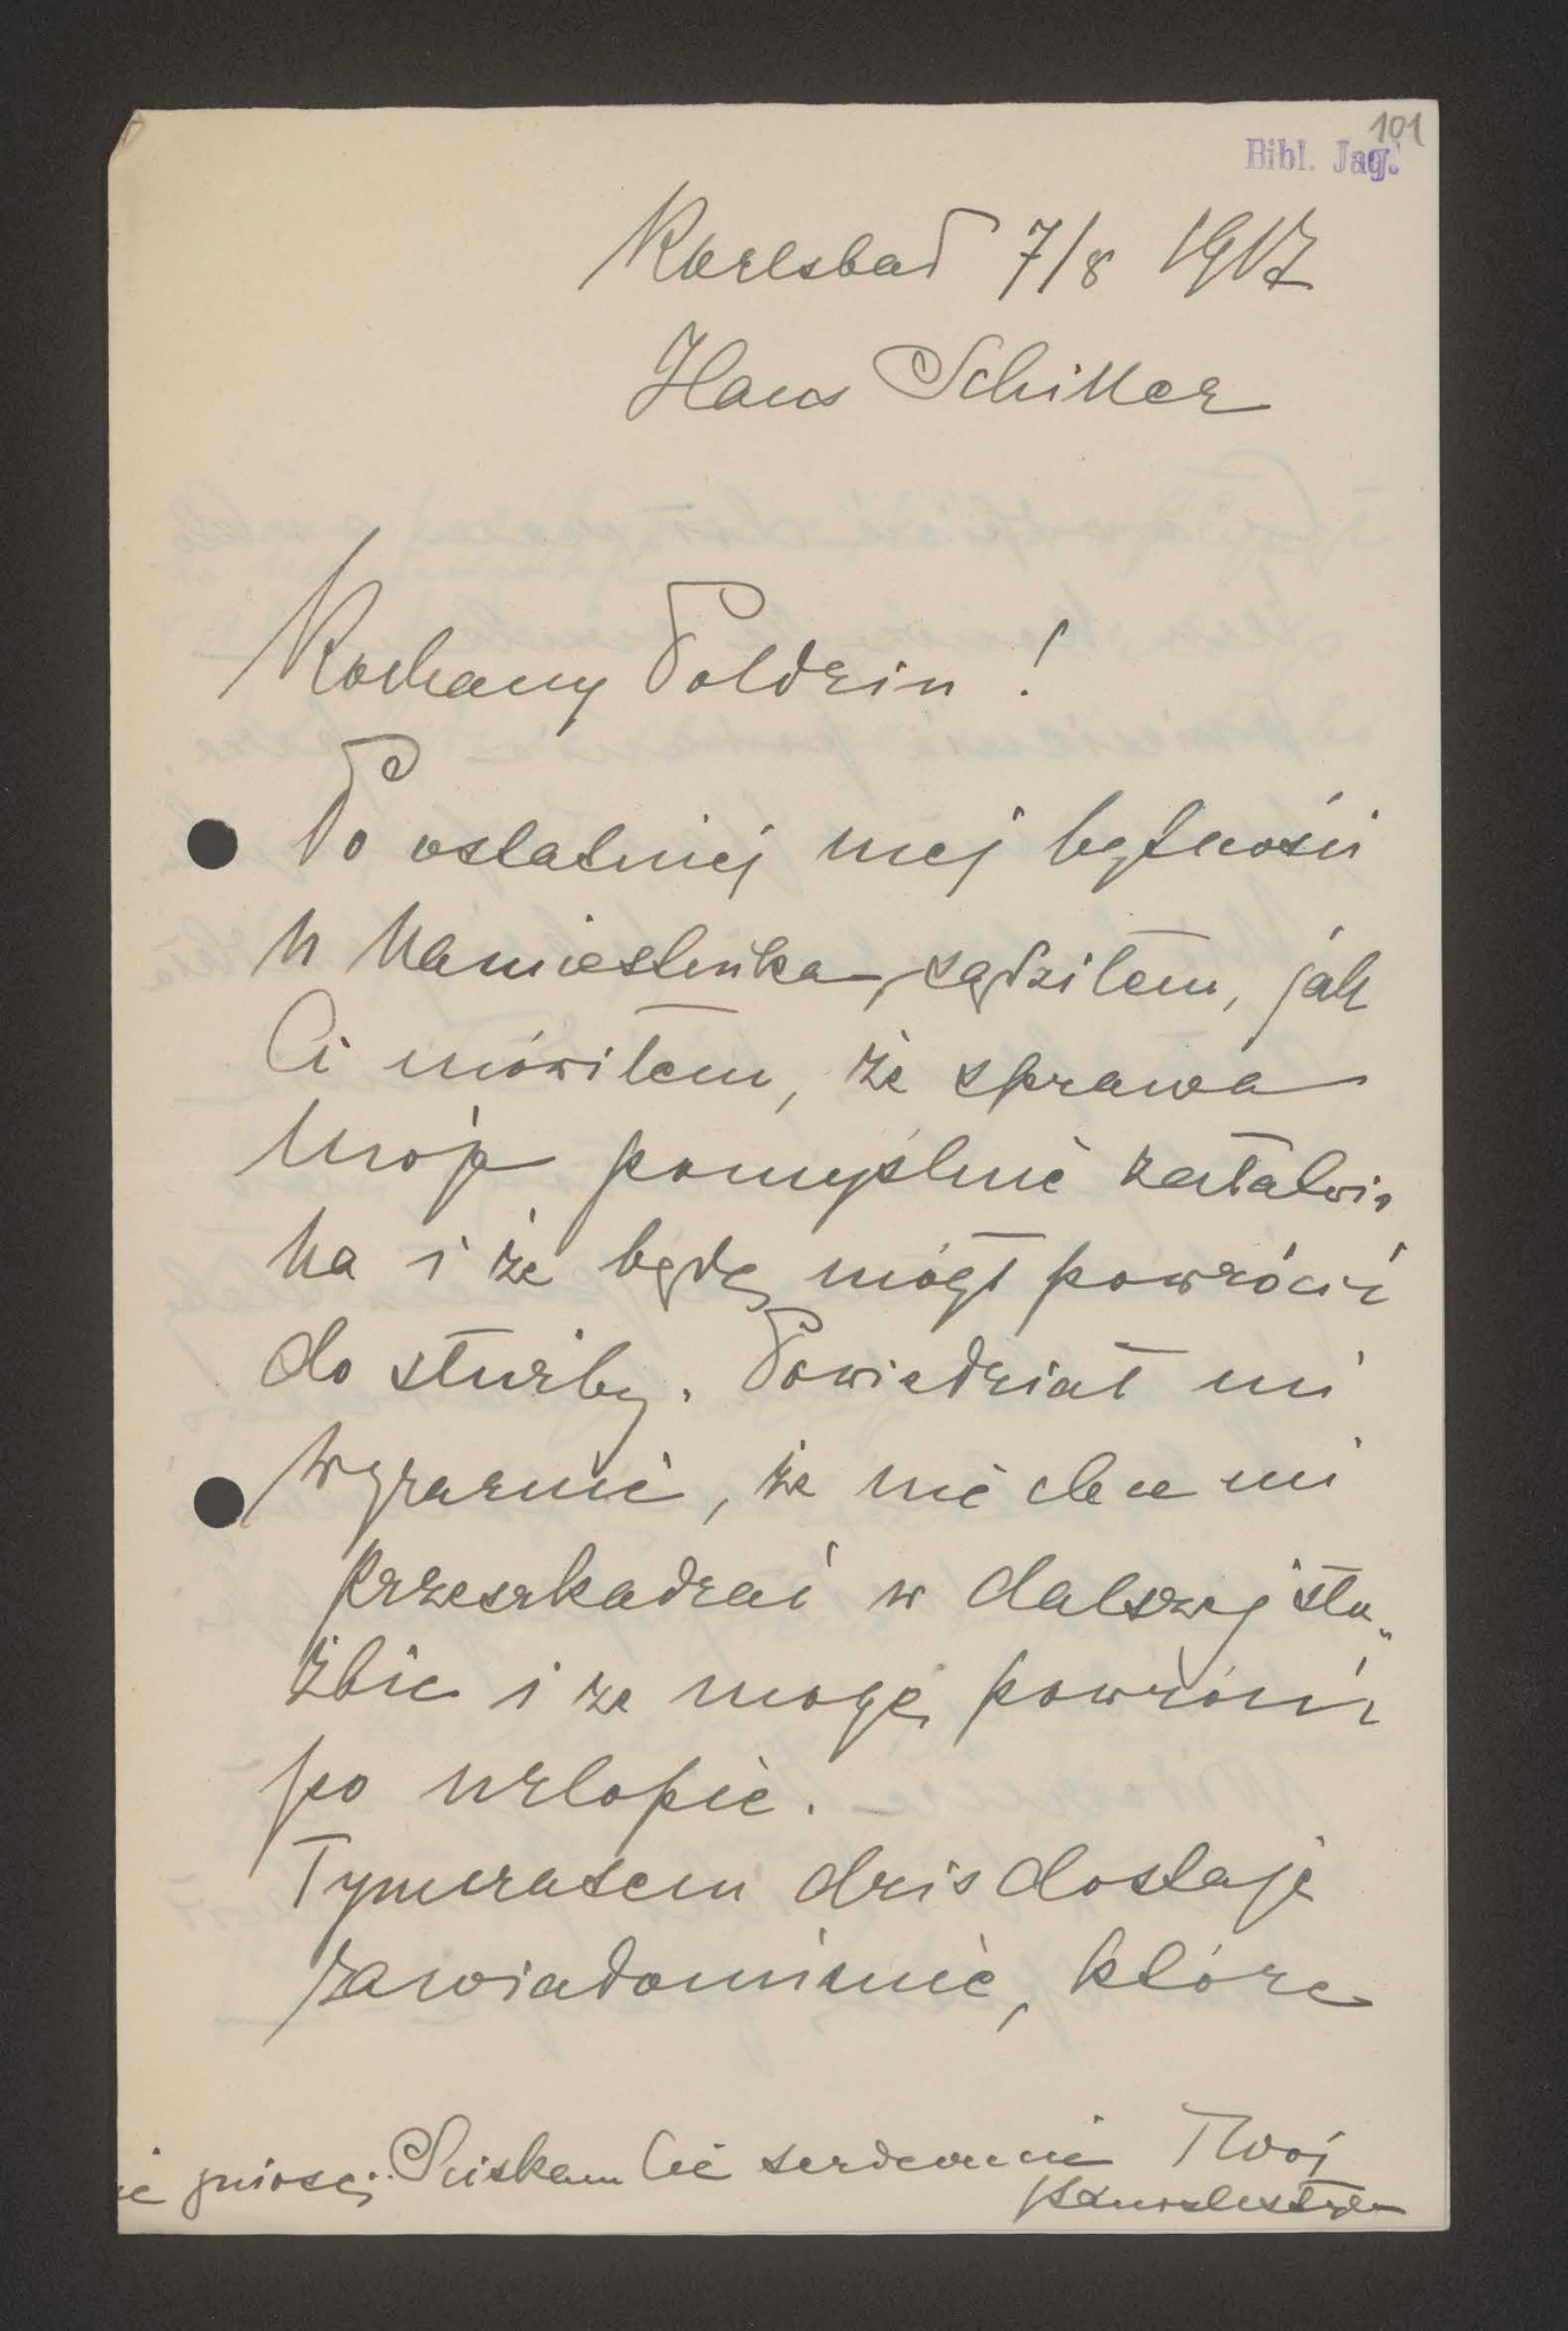 101
Bibl. Jag.
Karlsbad 7/8 1917
Haus Schiller
Kochany Poldziu!
Po ostatniej mej bytności
u Namiestnika, sądziłem, jak
Ci mówiłem, że sprawa
moja pomyślnie załatwio
na i że będę mógł powrócić
do służby. Powiedział mi
wyraźnie, że nie chce mi
przeszkadzać w dalszej słu„
żbie i że mogę powrócić
po urlopie.
Tymczasem dziś dostaję
zawiadomienie, które
Ściskam Cię serdecznie Twój